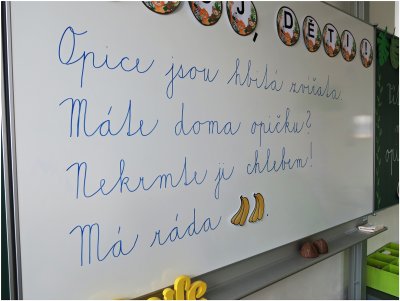 J, DĚTI!!
Opice jsou hbitá zvířata.
Máte doma opičku?
Nekrmte ji chlebem!
Má ráda